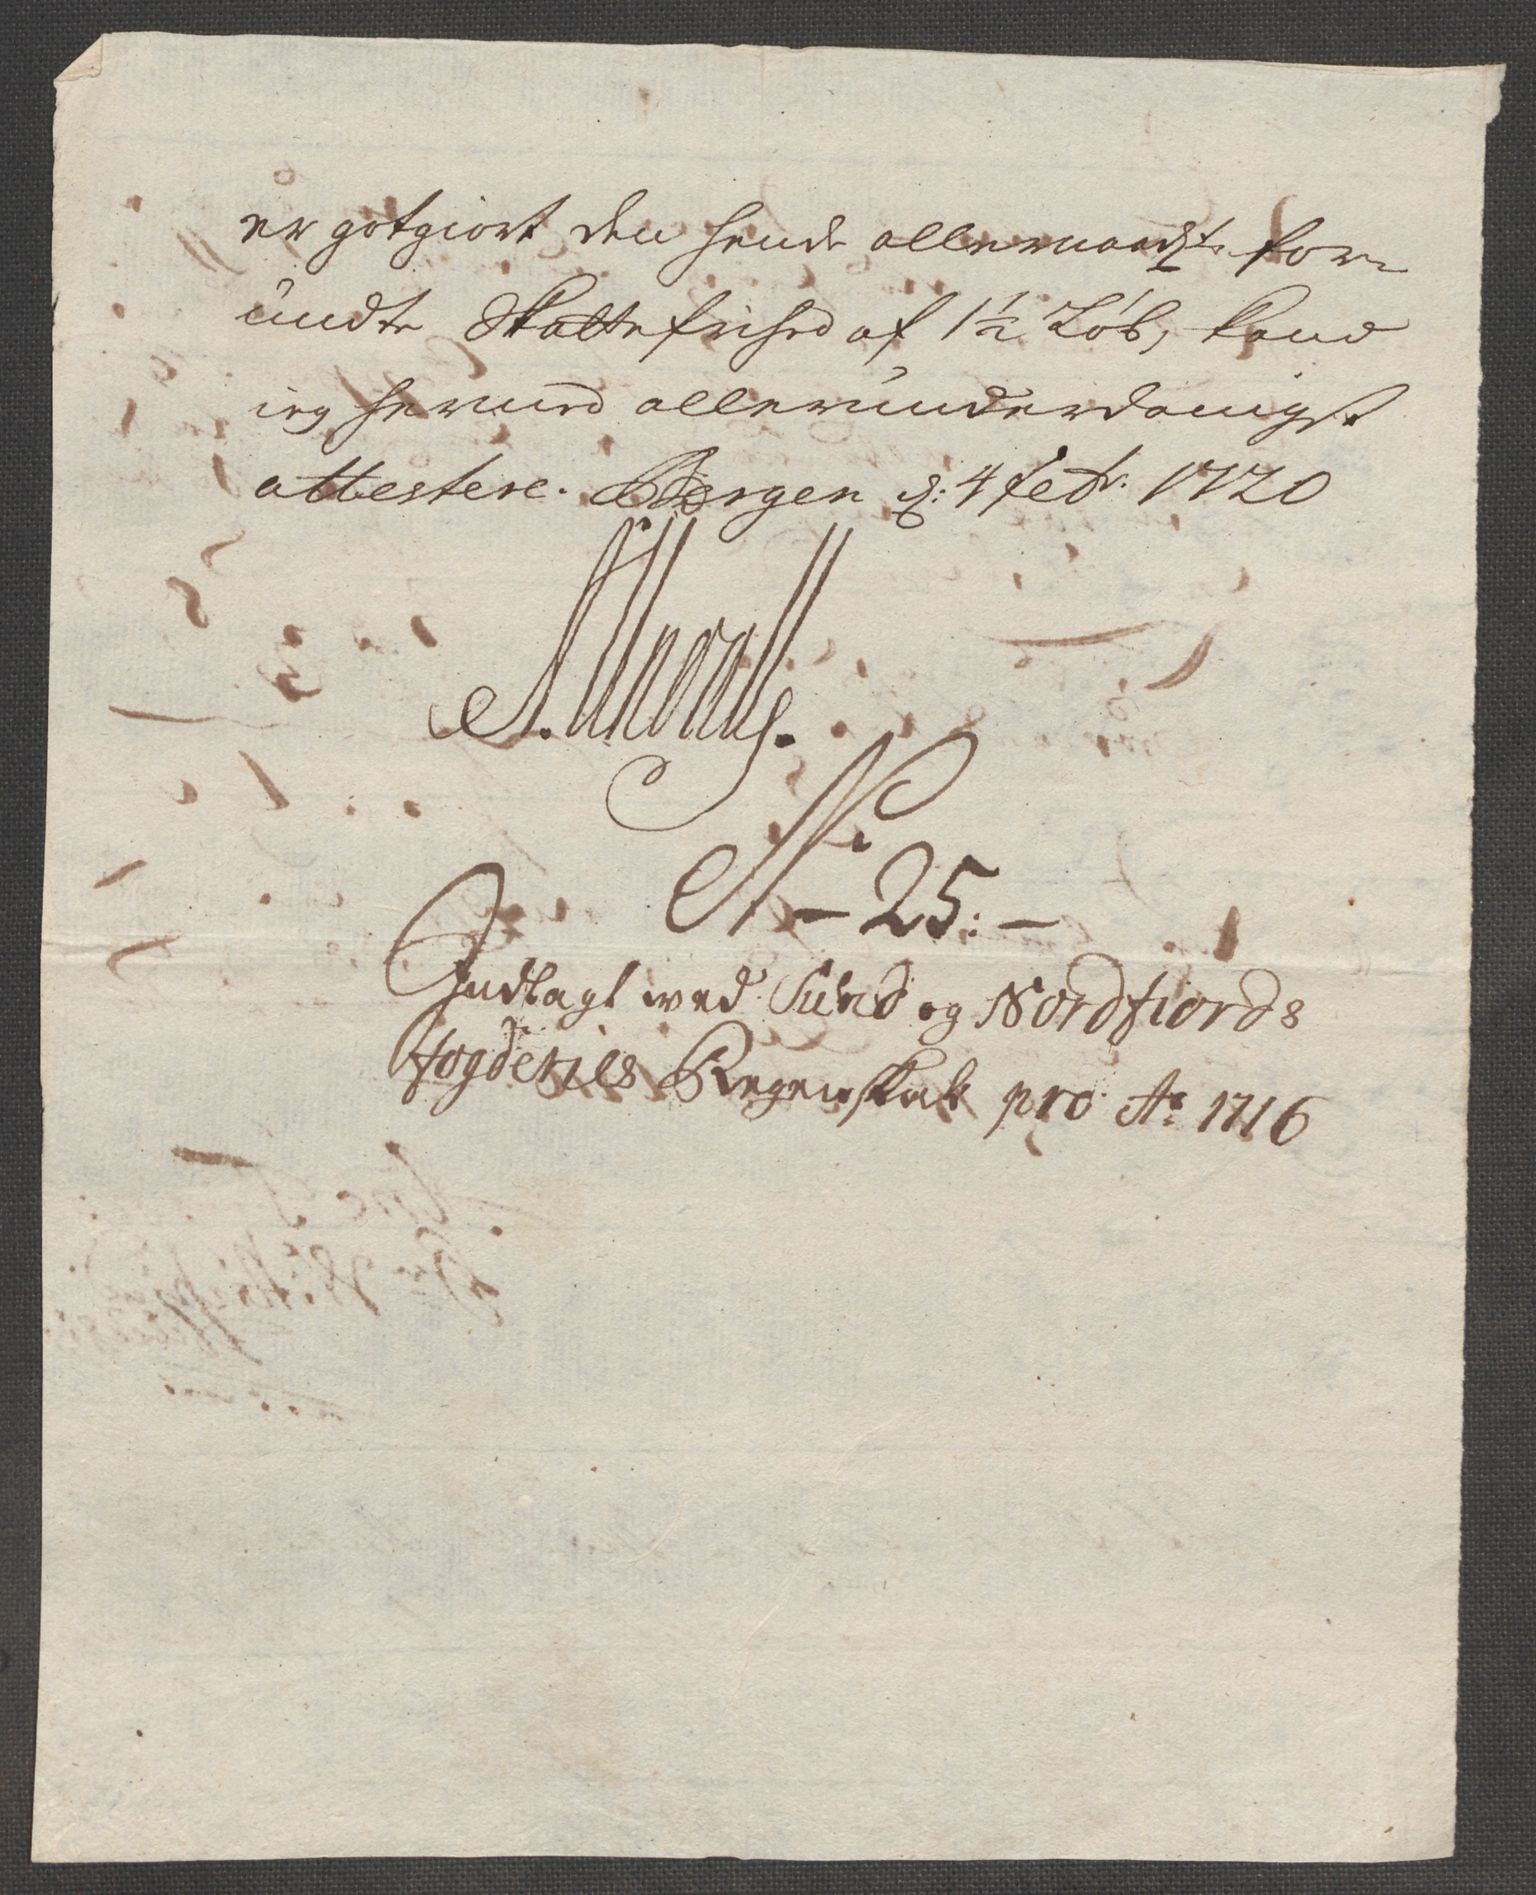 er gotgiort den hende allernaadste for-
undte Skattefrihed af 1½ Løb, kand
ieg herved allerunderdanigst
attestere. Bergen d: 4 febr. 1720
No 25:
Indlagt wed Sund og Nordfiords
fogderies Regenskab pro Ao 1716